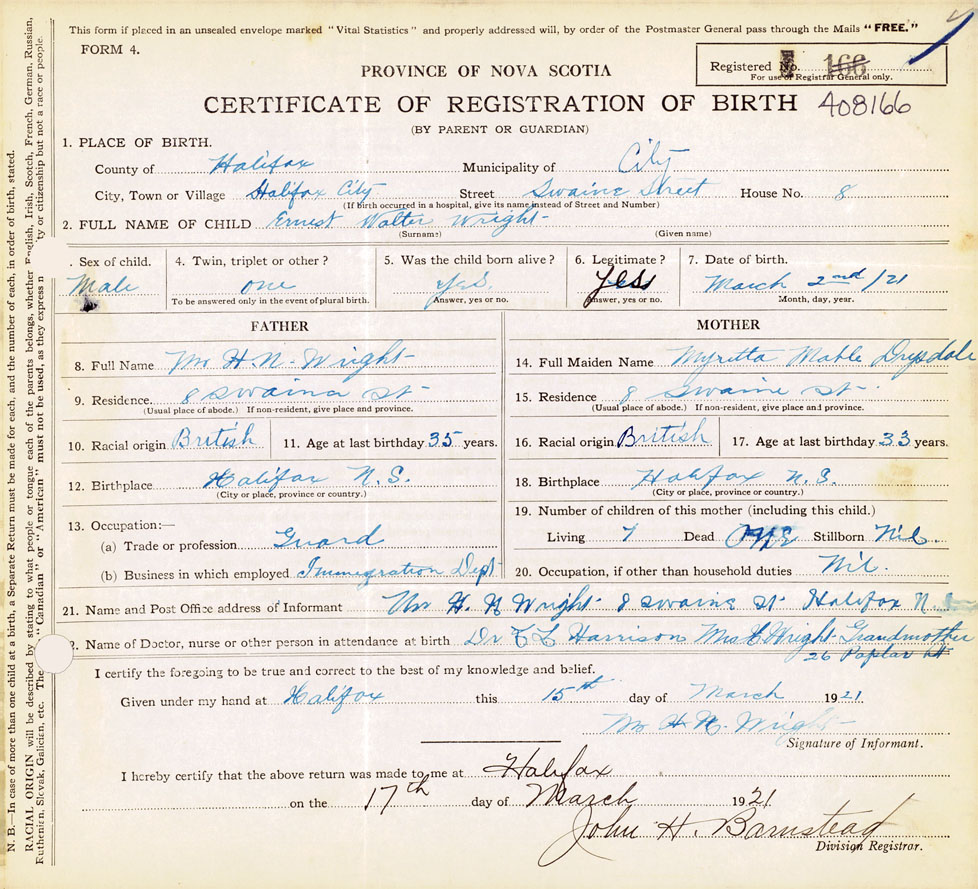 This form if placed in an unsealed envelope marked "Vital Statistics" and properly addressed will, by order of the Postmaster General pass through the Mails "FREE."
FORM 4.
Registered No. 166
For use of Registrar General only.
PROVINCE OF NOVA SCOTIA
CERTIFICATE OF REGISTRATION OF BIRTH 408166
(BY PARENT OR GUARDIAN)
1. PLACE OF BIRTH.
County of Halifax Municipality of City
City, Town or Village Halifax City Street Swaine Street House No. 8
(If birth occurred in a hospital, give its name instead of Street and Number)
2. FULL NAME OF CHILD Ernest Walter Wright
(Surname) (Given name)
. Sex of child. 4. Twin, triplet or other ? 5. Was the child born alive ? 6. Legitimate ? 7. Date of birth.
Male one yes. Yess March 2nd /21
To be answered only in the event of plural birth. Answer, yes or no. Answer, yes or no. Month, day, year.
FATHER MOTHER
8. Full Name Mr H N. Wright 14. Full Maiden Name Myretta Mable Drysdale
9. Residence. 8 Swaine St 15. Residence 8 Swaine St.
(Usual place of abode.) If non-resident, give place and province. (Usual place of abode.) If non-resident, give place and province.
10. Racial origin British 11. Age at last birthday 35 years. 16. Racial origin British 17. Age at last birthday 33 years.
12. Birthplace Halifax N.S. 18. Birthplace Halifax N.S.
(City or place, province or country.) (City or place, province or country.)
13. Occupation:— 19. Number of children of this mother (including this child.)
(a) Trade or profession Guard Living 7 Dead ONE Stillborn Nil.
(b) Business in which employed Immigration Dept 20. Occupation, if other than household duties Nil.
21. Name and Post Office address of Informant Mr H. N Wright 8 Swaine St Halifax N.
2. Name of Doctor, nurse or other person in attendance at birth Dr Harrison Mrs Wright Grandmother
26 Poplar St
I certify the foregoing to be true and correct to the best of my knowledge and belief.
Given under my hand at Halifax this 15th day of March 1921.
Mr H. N. Wright
Signature of Informant.
I hereby certify that the above return was made to me at Halifax
on the 17th day of March 1921
John H. Barnstead
Division Registrar.
N. B.—In case of more than one child at a birth, a Separate Return must be made for each, and the number of each, in order of birth, stated.
RACIAL ORIGIN will be described by stating to what people or tongue each of the parents belongs, whether English, Irish, Scotch, French, German, Russian,
Ruthenian, Slovak, Galician, etc. The "Canadian" or "American" must not be used, as they express n ty or citizenship but not a race or people.